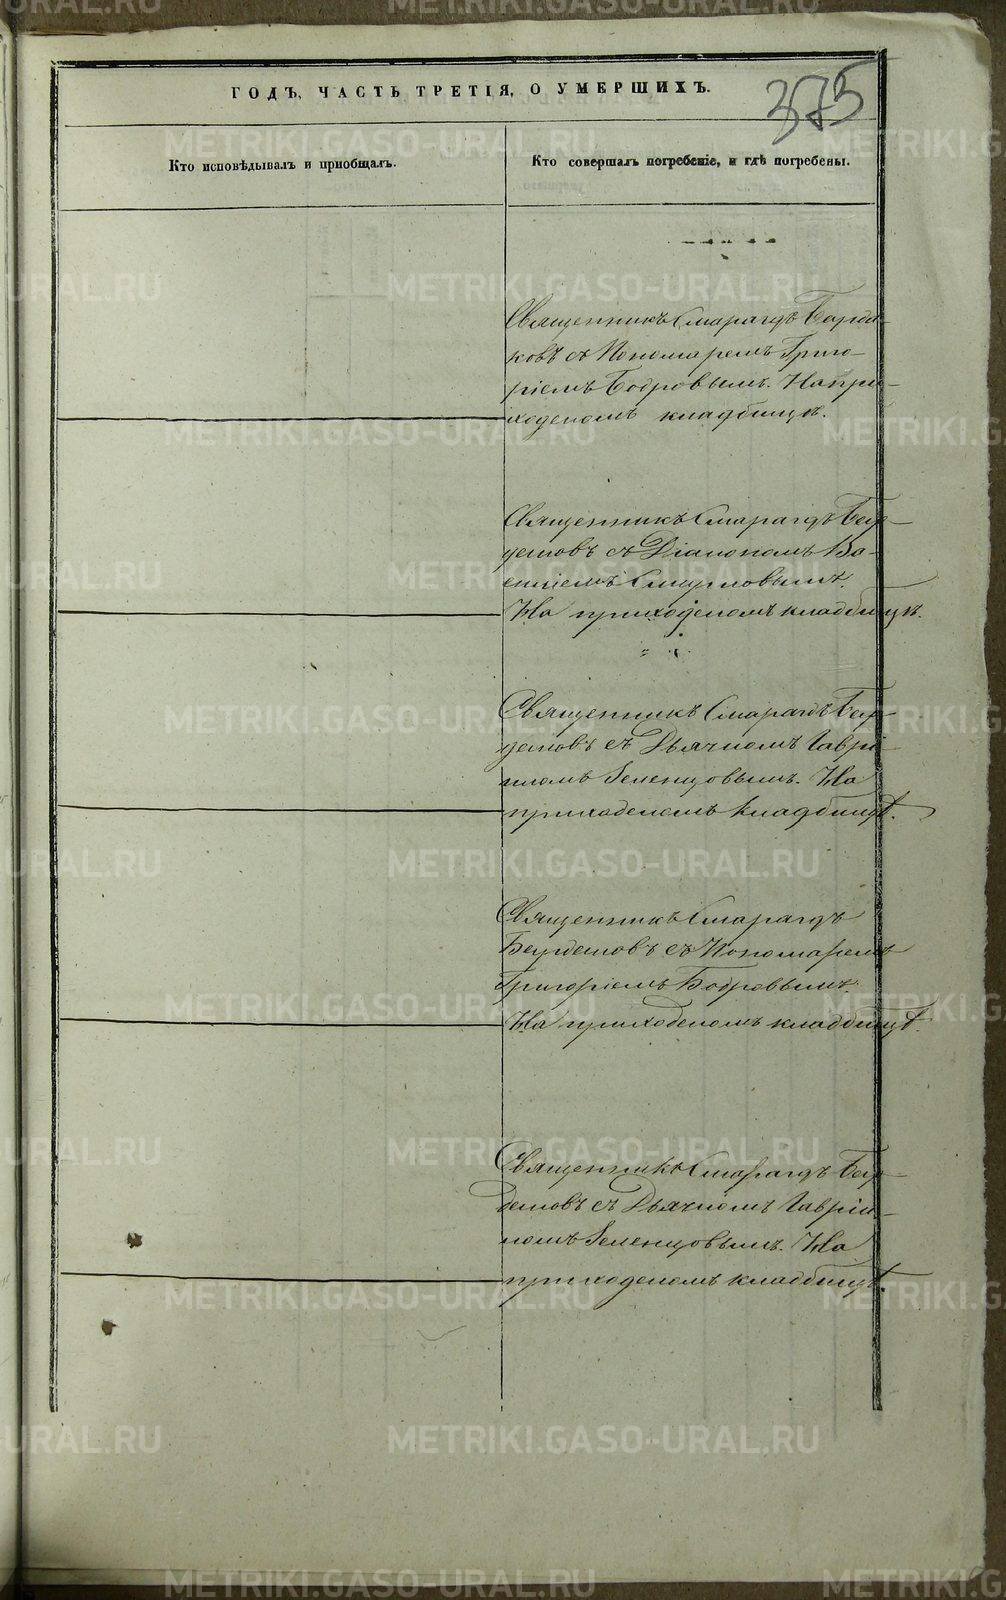 375
ГОДЪ, ЧАСТЬ ТРЕТІЯ, О УМЕРШИХЪ.
Кто исповѣдывалъ и приобщалъ.
Кто совершалъ погребеніе, и гдѣ погребены.
Священникъ Смарагдъ
ковъ съ Пономаремъ Григо-
ріемъ Бобровымъ. На при-
ходскомъ кладбищѣ.
Священникъ Смарагдъ
съ Діакономъ Ва-
Смирновымъ.
На приходскомъ кладбищѣ.
Священникъ Смарагдъ
съ Дьячкомъ Гаврі-
иломъ Зеленцовымъ. На
приходскомъ кладбищѣ.
Священникъ Смарагдъ
съ Пономаремъ
Григоріемъ Бобровымъ.
На приходскомъ кладбищѣ.
Священникъ Смарагдъ
съ Дьячкомъ Гавріи-
ломъ Зеленцовымъ. На
приходскомъ кладбищѣ.
METRIKI.GASO-URAL.RU